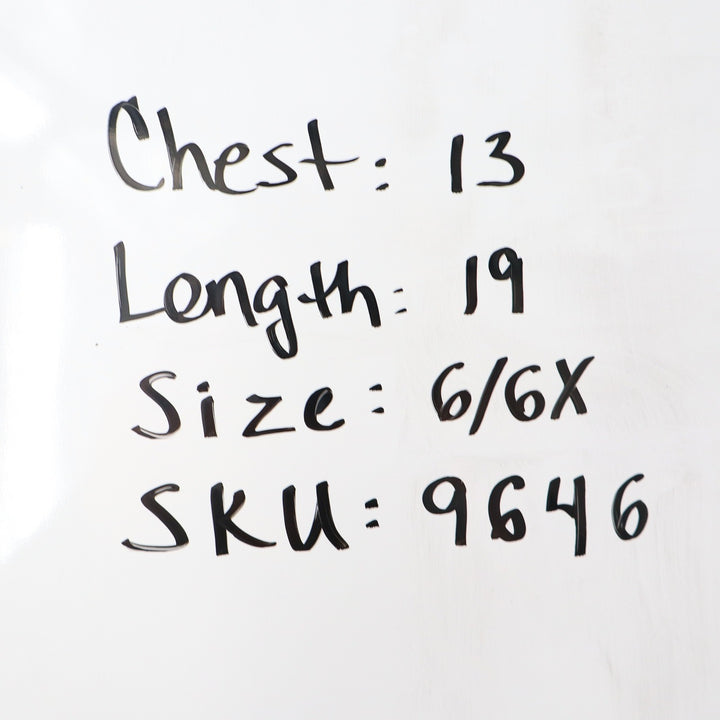 Chest: 13
Length: 19
Size: 6/6X
SKU: 9646